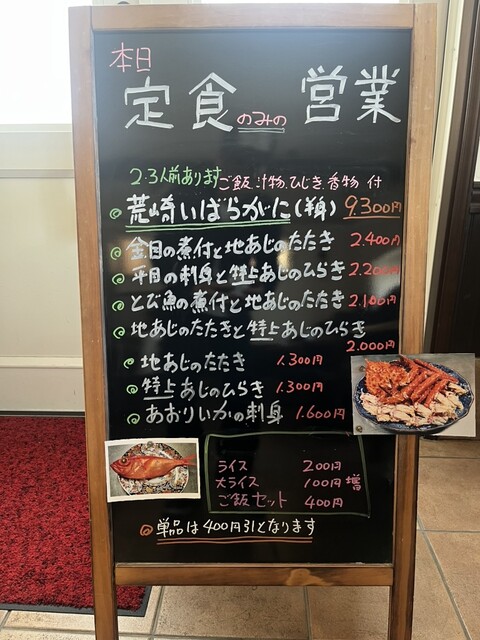 本日
定食のみの 営業
2.3人前あります
ご飯.汁物.ひじき.香物 付
荒崎いばらがに(半身) 9.300円
金目の煮付と地あじのたたき 2.400円
平目の刺身と特上あじのひらき 2.200円
とび魚の煮付と地あじのたたき 2.100円
地あじのたたきと特上あじのひらき 2.000円
地あじのたたき 1.300円
特上あじのひらき 1.300円
あおりいかの刺身 1.600円
ライス 200円
大ライス 100円増
ご飯セット 400円
単品は400円引となります